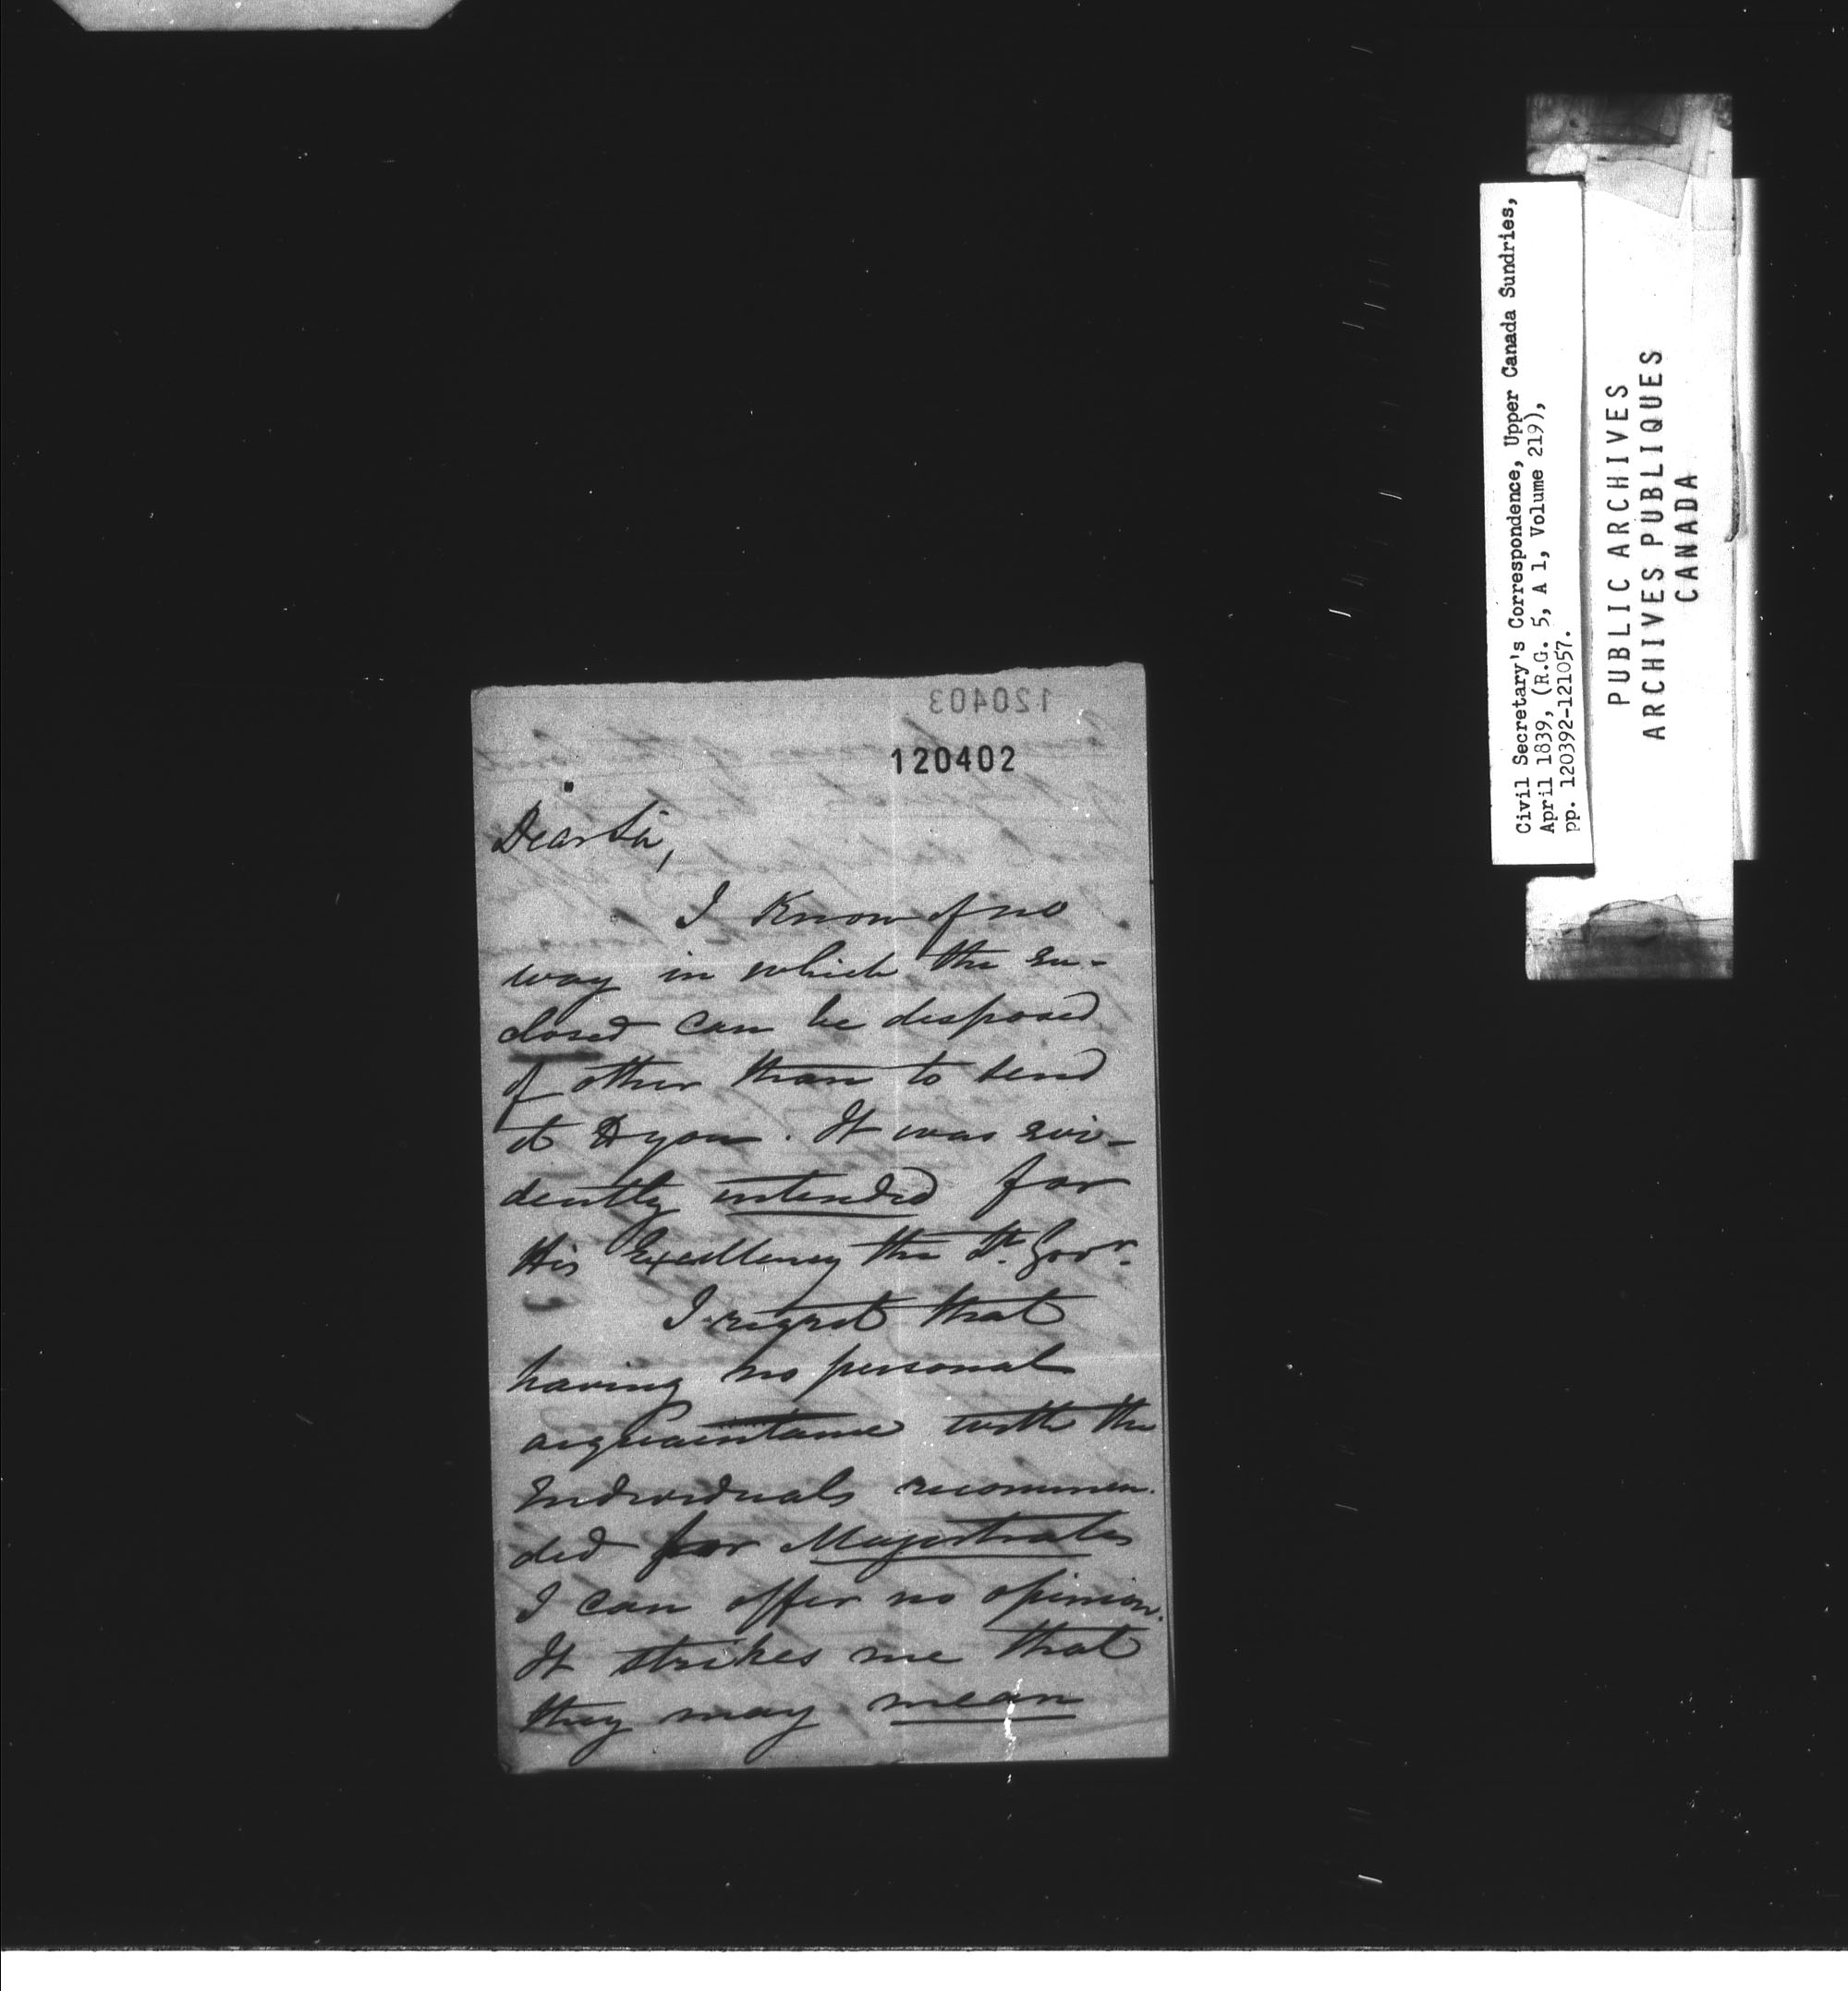 120403
120402
Dear Sir,
I Know of no
way in which the en-
closed can be disposed
of other than to send
it to you. It was evi-
dently intended for
His Excellency the Lt. Govr.
I regret that
having no personal
acquaintance with the
Individuals recommen-
ded for Magistrates
I can offer no opinion.
It strikes me that
they may mean
Civil Secretary's Correspondence, Upper Canada Sundries,
April 1839, (R.G. 5, A 1, Volume 219),
pp. 120392-121057.
PUBLIC ARCHIVES
ARCHIVES PUBLIQUES
CANADA